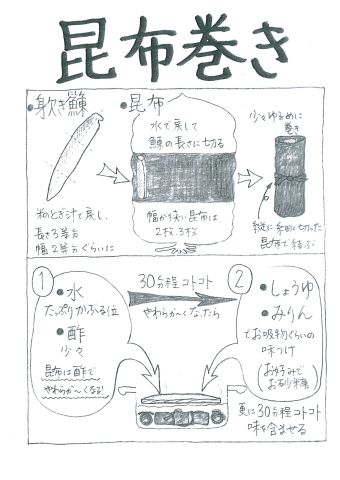 昆布巻き
・身欠き鰊
米のとぎ汁で戻し、
長さ3等分
幅2等分ぐらいに
・昆布
水で戻して
鰊の長さに切る
幅が狭い昆布は
2枚、3枚
少々ゆるめに
巻き
縦に細く切った
昆布で結ぶ
①
・水
たっぷりかぶる位
・酢
少々
昆布は酢で
やわらか〜くなる!
30分程コトコト
やわらか〜くなったら
②
・しょうゆ
・みりん
でお吸物ぐらいの
味つけ
(お好みで
お砂糖)
更に30分程コトコト
味を含ませる